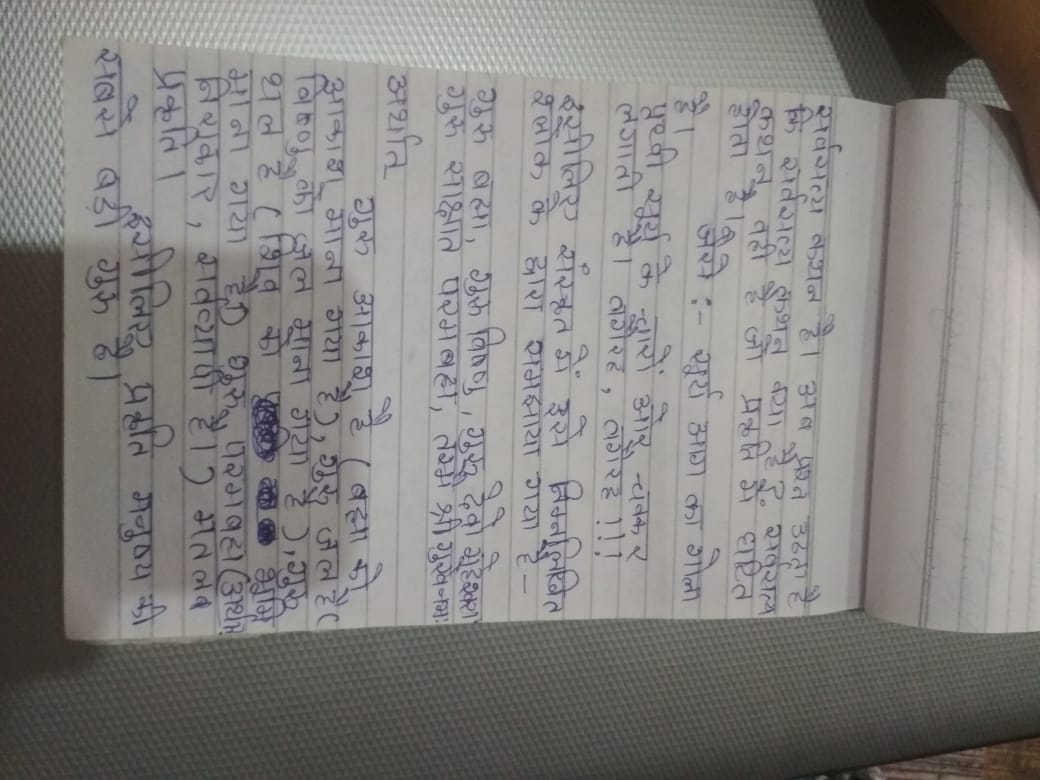 सर्वसत्य कथन है। अब प्रश्न उठता है
कि सर्वसत्य कथन क्या है? सर्वसत्य
कथन वही है जो प्रकृति में घटित
होता है।
जैसे :- सूर्य आग का गोला
है।
पृथ्वी सूर्य के चारों ओर चक्कर
लगाती है। वगैरह, वगैरह!!!
इसीलिए संस्कृत में इसे निम्नलिखित
श्लोक के द्वारा समझाया गया है -
गुरु ब्रह्मा, गुरु विष्णु, गुरु देवो महेश्वरा
गुरु साक्षात परमब्रह्म, तस्मै श्री गुरुवे नमः
अर्थात
गुरु आकाश है (ब्रह्मा को
आकाश माना गया है), गुरु जल है (
विष्णु को जल माना गया है), गुरु
थल है (शिव को भूमि
माना गया है) गुरु परमब्रह्म (अर्थात
निराकार, सर्वव्यापी है।) मतलब
प्रकृति।
इसीलिए प्रकृति मनुष्य की
सबसे बड़ी गुरु है।